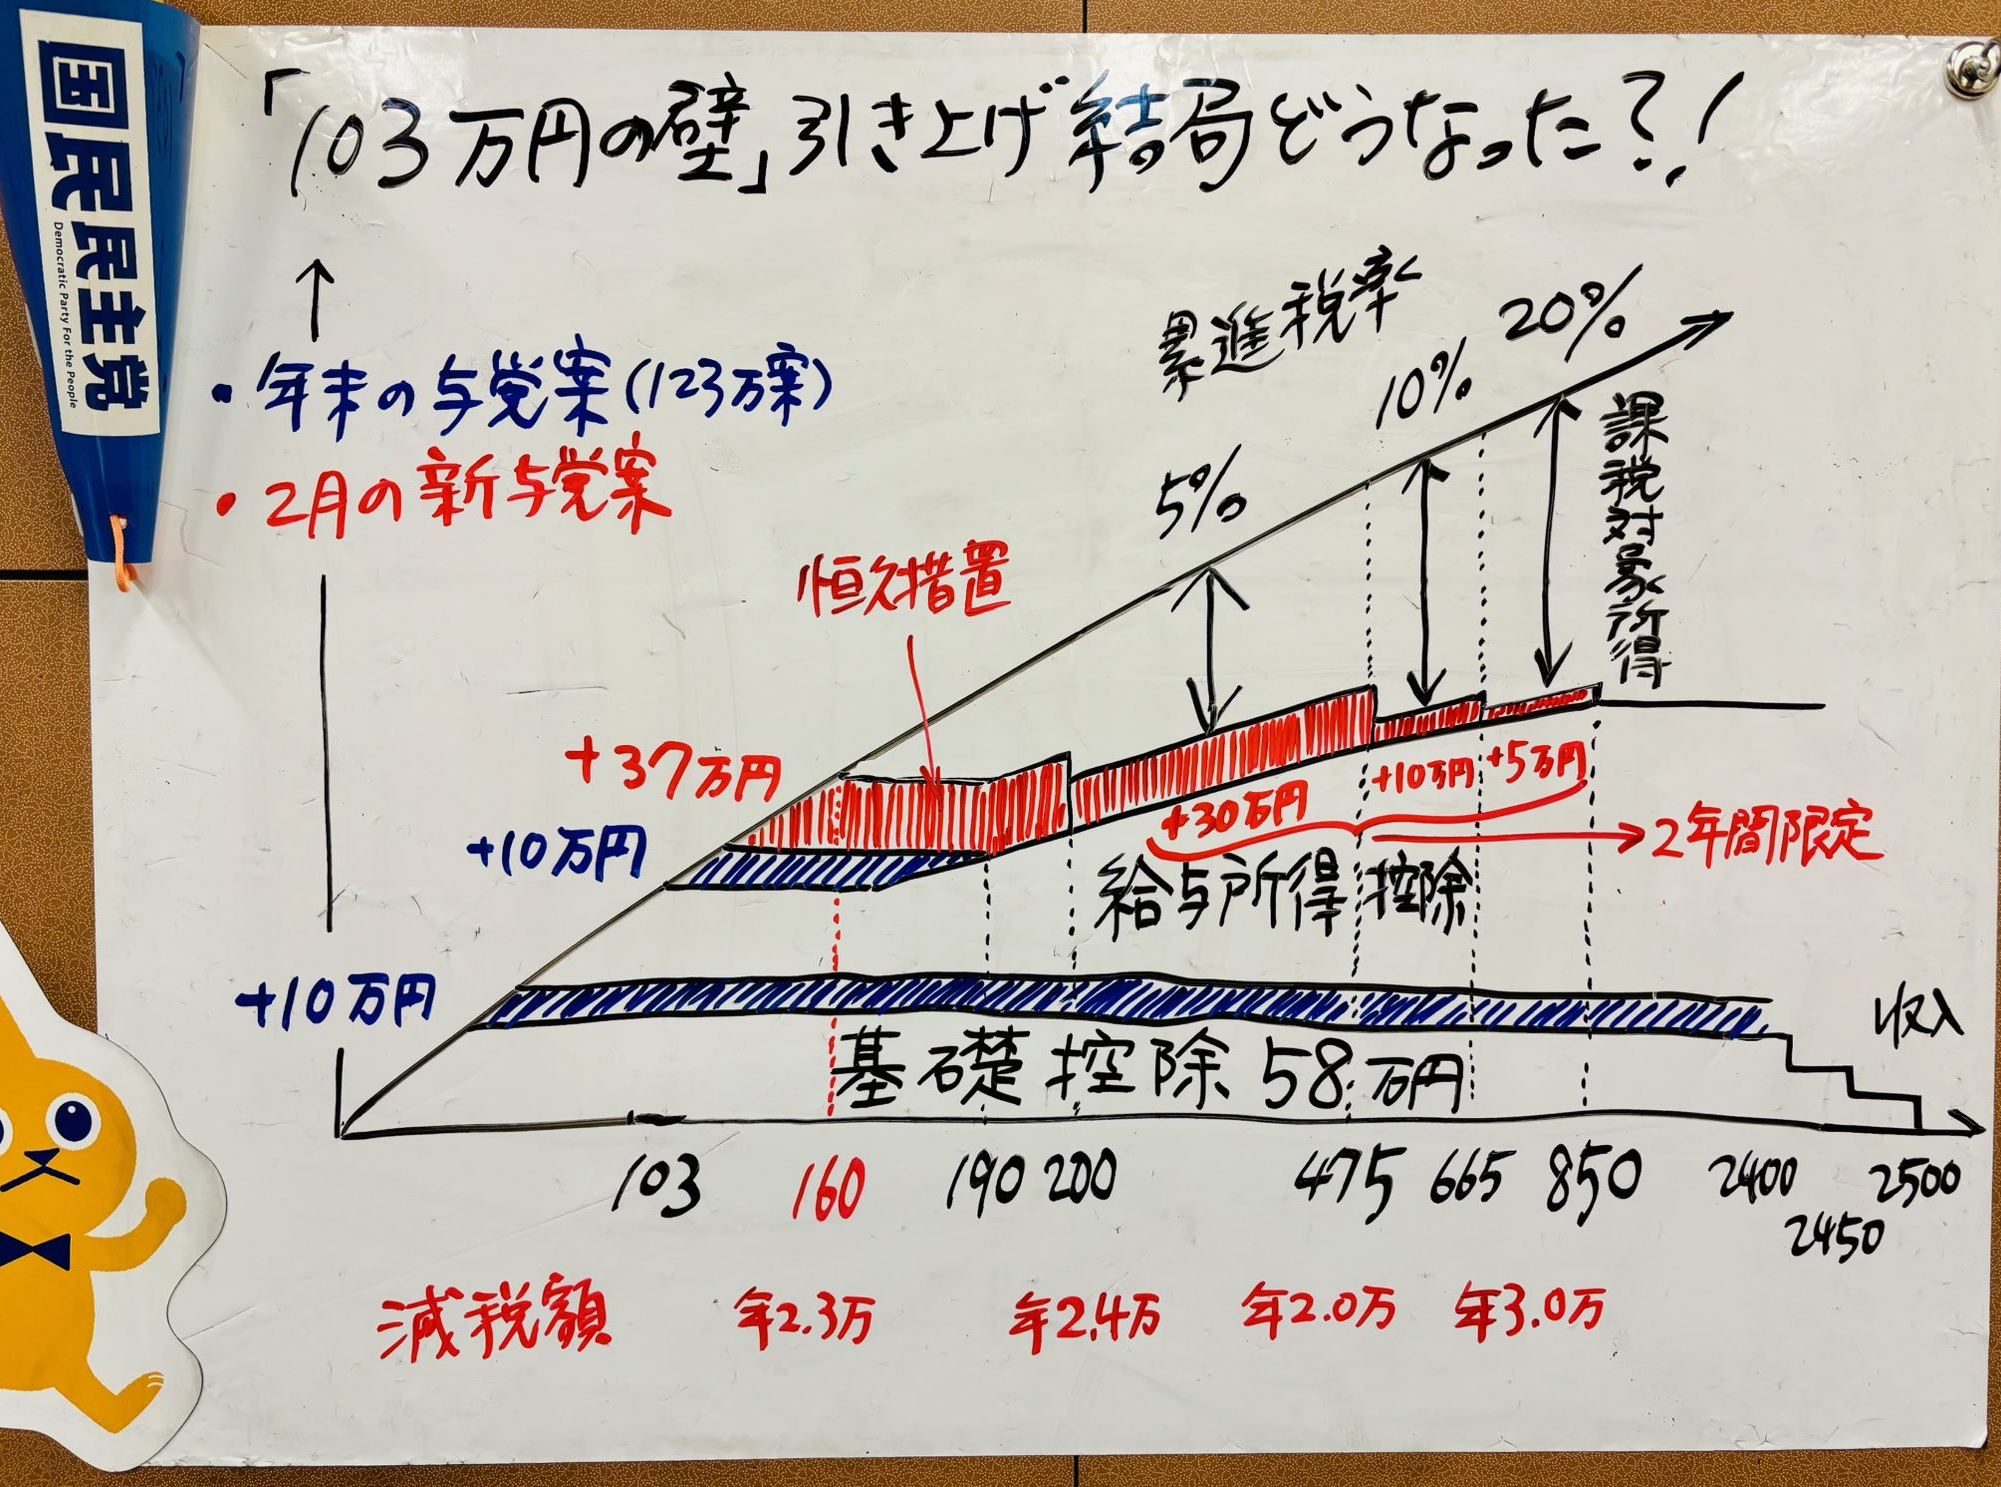 国民民主党
Democratic Party For the People
「103万円の壁」引き上げ結局どうなった?!
・年末の与党案(123万案)
・2月の新与党案
累進税率
5%
10%
20%
課税対象所得
恒久措置
+37万円
+10万円
+30万円
+10万円
+5万円
2年間限定
給与所得控除
+10万円
基礎控除58万円
収入
103
160
190
200
475
665
850
2400
2450
2500
減税額
年2.3万
年2.4万
年2.0万
年3.0万